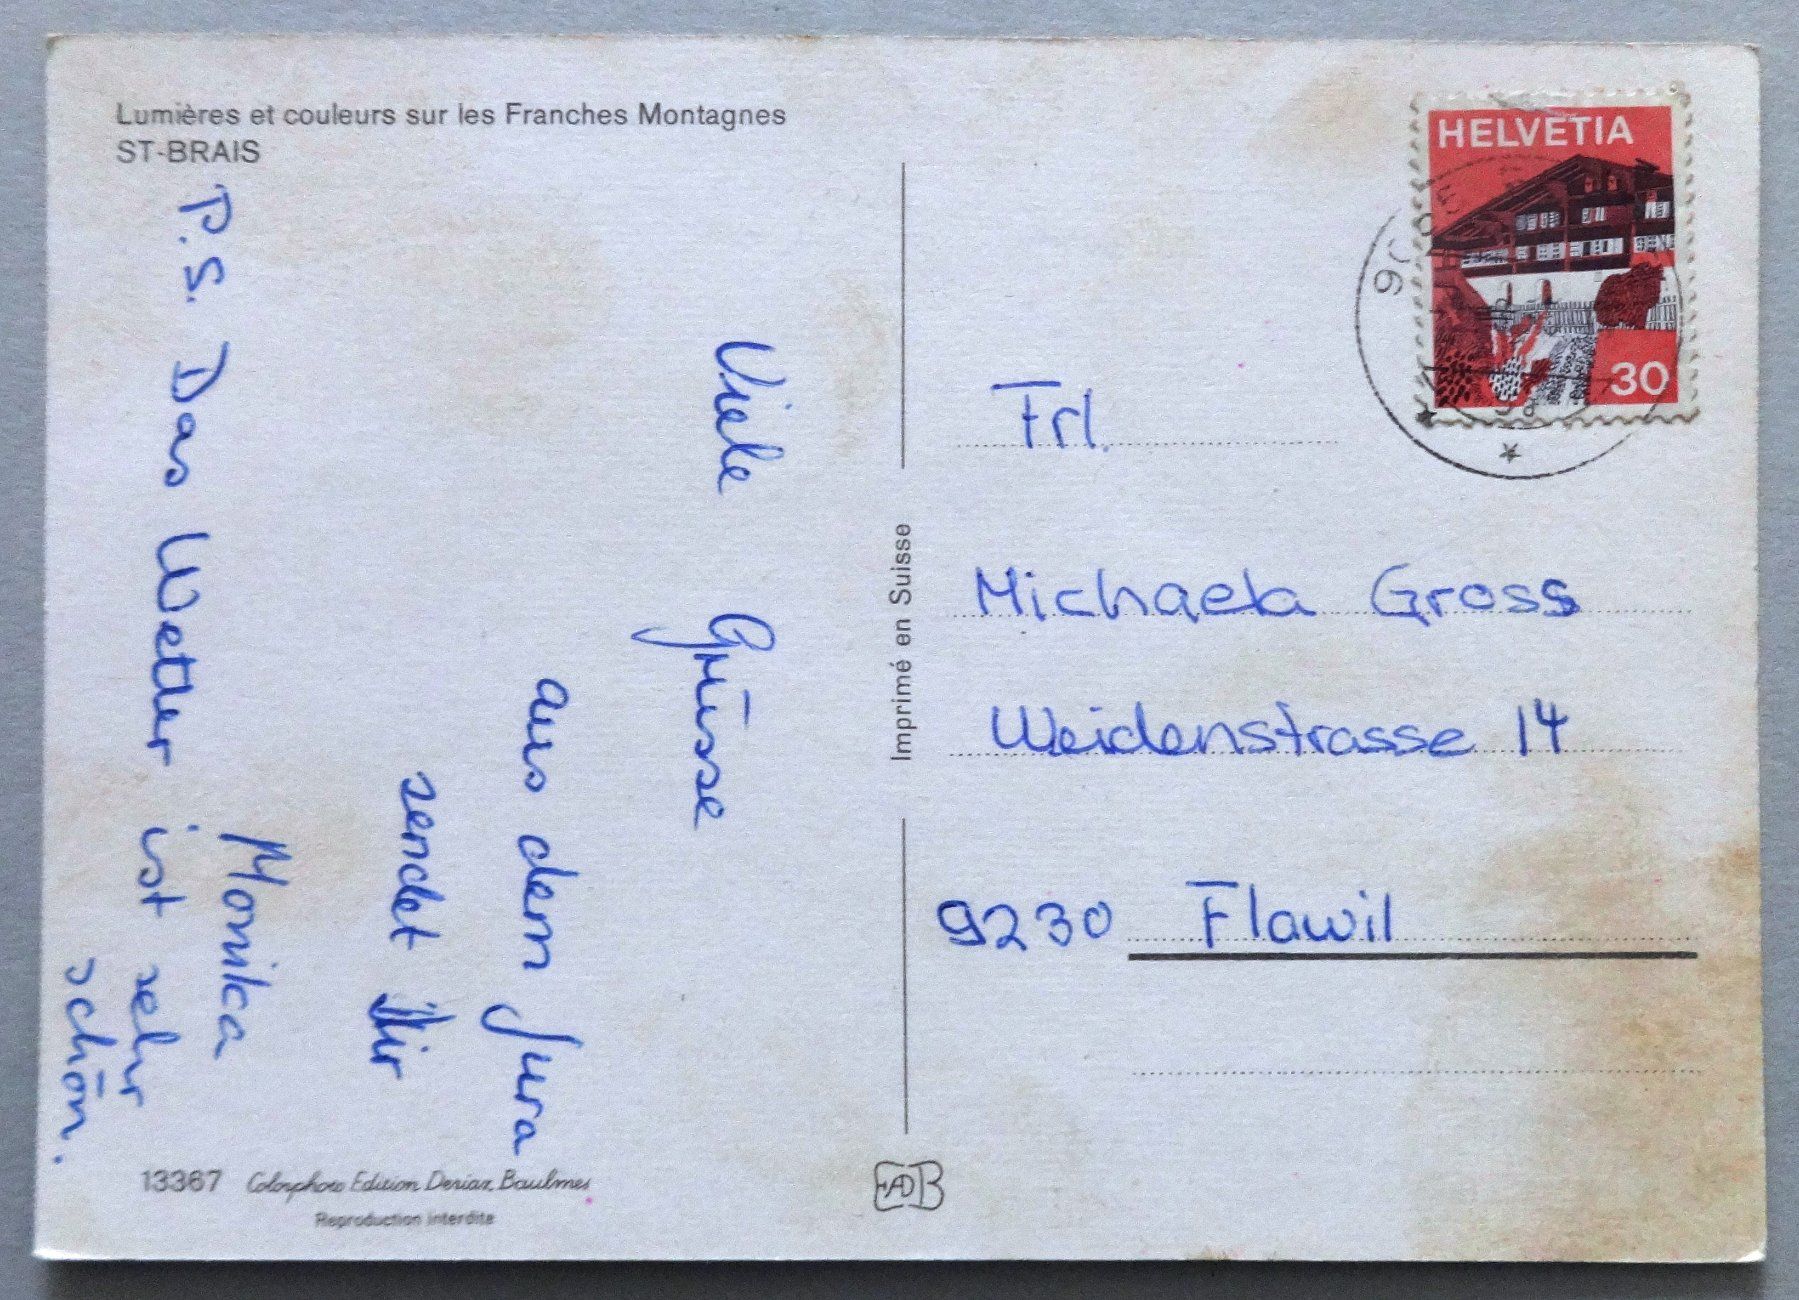 Lumières et couleurs sur les Franches Montagnes
ST-BRAIS
Viele Grüsse
aus dem Jura
sendet Dir
Monika
P.S. Das Wetter ist sehr
schön.
13367 Colorphoto Edition Deriaz, Baulmes
Reproduction interdite
Imprimé en Suisse
EDB
HELVETIA
30
Frl.
Michaela Gross
Weidenstrasse 14
9230 Flawil